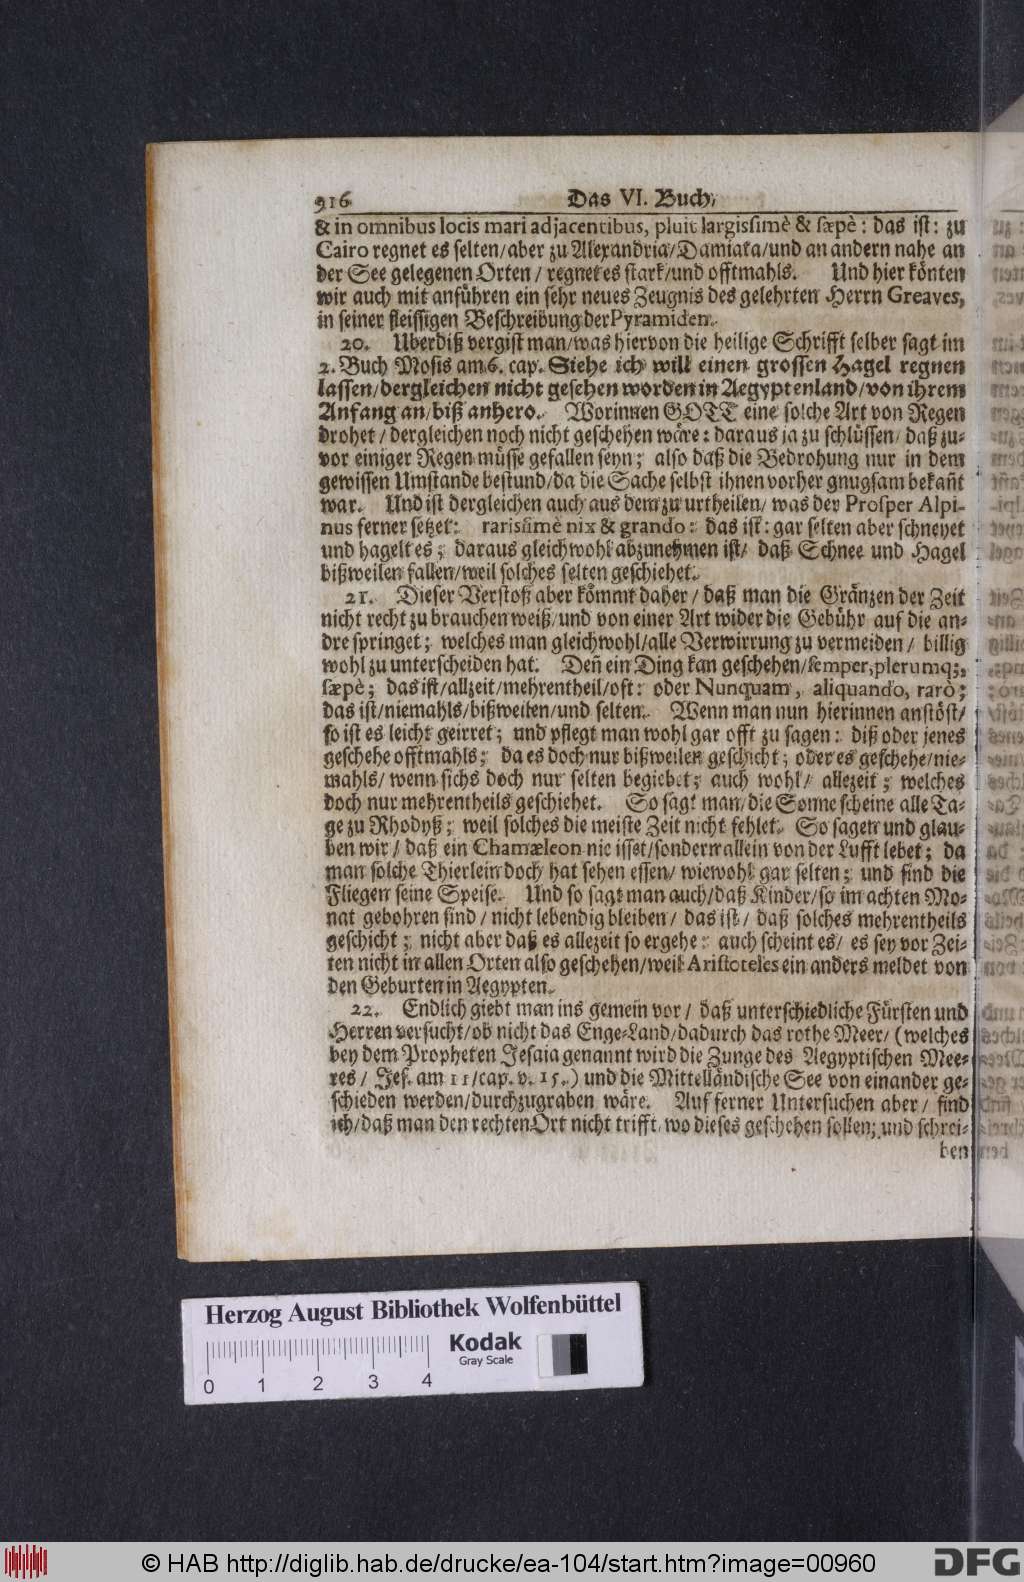 916 Das VI. Buch,
& in omnibus locis mari adjacentibus, pluit largissimè & sæpè: das ist: zu
Cairo regnet es selten/aber zu Alexandria/Damiata/und an andern nahe an
der See gelegenen Orten / regnet es stark/und offtmahls. Und hier könten
wir auch mit anführen ein sehr neues Zeugnis des gelehrten Herrn Greaves,
in seiner fleissigen Beschreibung der Pyramiden.
20. Uberdiß vergist man/was hiervon die heilige Schrifft selber sagt im
2. Buch Mosis am 6. cap. Siehe ich will einen grossen Hagel regnen
lassen/dergleichen nicht gesehen worden in Aegyptenland/von ihrem
Anfang an/biß anhero. Worinnen GOTT eine solche Art von Regen
drohet / dergleichen noch nicht geschehen wäre: daraus ja zu schlüssen/ daß zu-
vor einiger Regen müsse gefallen seyn; also daß die Bedrohung nur in dem
gewissen Umstande bestund/da die Sache selbst ihnen vorher gnugsam bekañt
war. Und ist dergleichen auch aus dem zu urtheilen/ was der Prosper Alpi-
nus ferner setzet: rarissimè nix & grando: das ist: gar selten aber schneyet
und hagelt es; daraus gleichwohl abzunehmen ist/ daß Schnee und Hagel
bißweilen fallen/weil solches selten geschiehet.
21. Dieser Verstoß aber kömmt daher / daß man die Gränzen der Zeit
nicht recht zu brauchen weiß/und von einer Art wider die Gebühr auf die an-
dre springet; welches man gleichwohl/alle Verwirrung zu vermeiden / billig
wohl zu unterscheiden hat. Deñ ein Ding kan geschehen/semper, plerumq;,
sæpè; das ist/allzeit/mehrentheil/oft: oder Nunquam, aliquando, rarò;
das ist/niemahls/bißweilen/und selten. Wenn man nun hierinnen anstöst/
so ist es leicht geirret; und pflegt man wohl gar offt zu sagen: diß oder jenes
geschehe offtmahls; da es doch nur bißweilen geschicht; oder es geschehe/nie-
mahls/ wenn sichs doch nur selten begiebet; auch wohl/ allezeit; welches
doch nur mehrentheils geschiehet. So sagt man/die Sonne scheine alle Ta-
ge zu Rhodyß; weil solches die meiste Zeit nicht fehlet. So sagen und glau-
ben wir / daß ein Chamæleon nie isset/sondern allein von der Lufft lebet; da
man solche Thierlein doch hat sehen essen/ wiewohl gar selten; und sind die
Fliegen seine Speise. Und so sagt man auch/daß Kinder/so im achten Mo-
nat gebohren sind / nicht lebendig bleiben / das ist/ daß solches mehrentheils
geschicht; nicht aber daß es allezeit so ergehe: auch scheint es/ es sey vor Zei-
ten nicht in allen Orten also geschehen/weil Aristoteles ein anders meldet von
den Geburten in Aegypten.
22. Endlich giebt man ins gemein vor / daß unterschiedliche Fürsten und
Herren versucht/ob nicht das Enge-Land/dadurch das rothe Meer/ (welches
bey dem Propheten Jesaia genannt wird die Zunge des Aegyptischen Mee-
res / Jes. am 11/cap. v. 15.) und die Mittelländische See von einander ge-
schieden werden/durchzugraben wäre. Auf ferner Untersuchen aber / find
ich/daß man den rechten Ort nicht trifft/wo dieses geschehen sollen; und schrei-
ben
Herzog August Bibliothek Wolfenbüttel
Kodak
Gray Scale
0 1 2 3 4
© HAB http://diglib.hab.de/drucke/ea-104/start.htm?image=00960
DFG